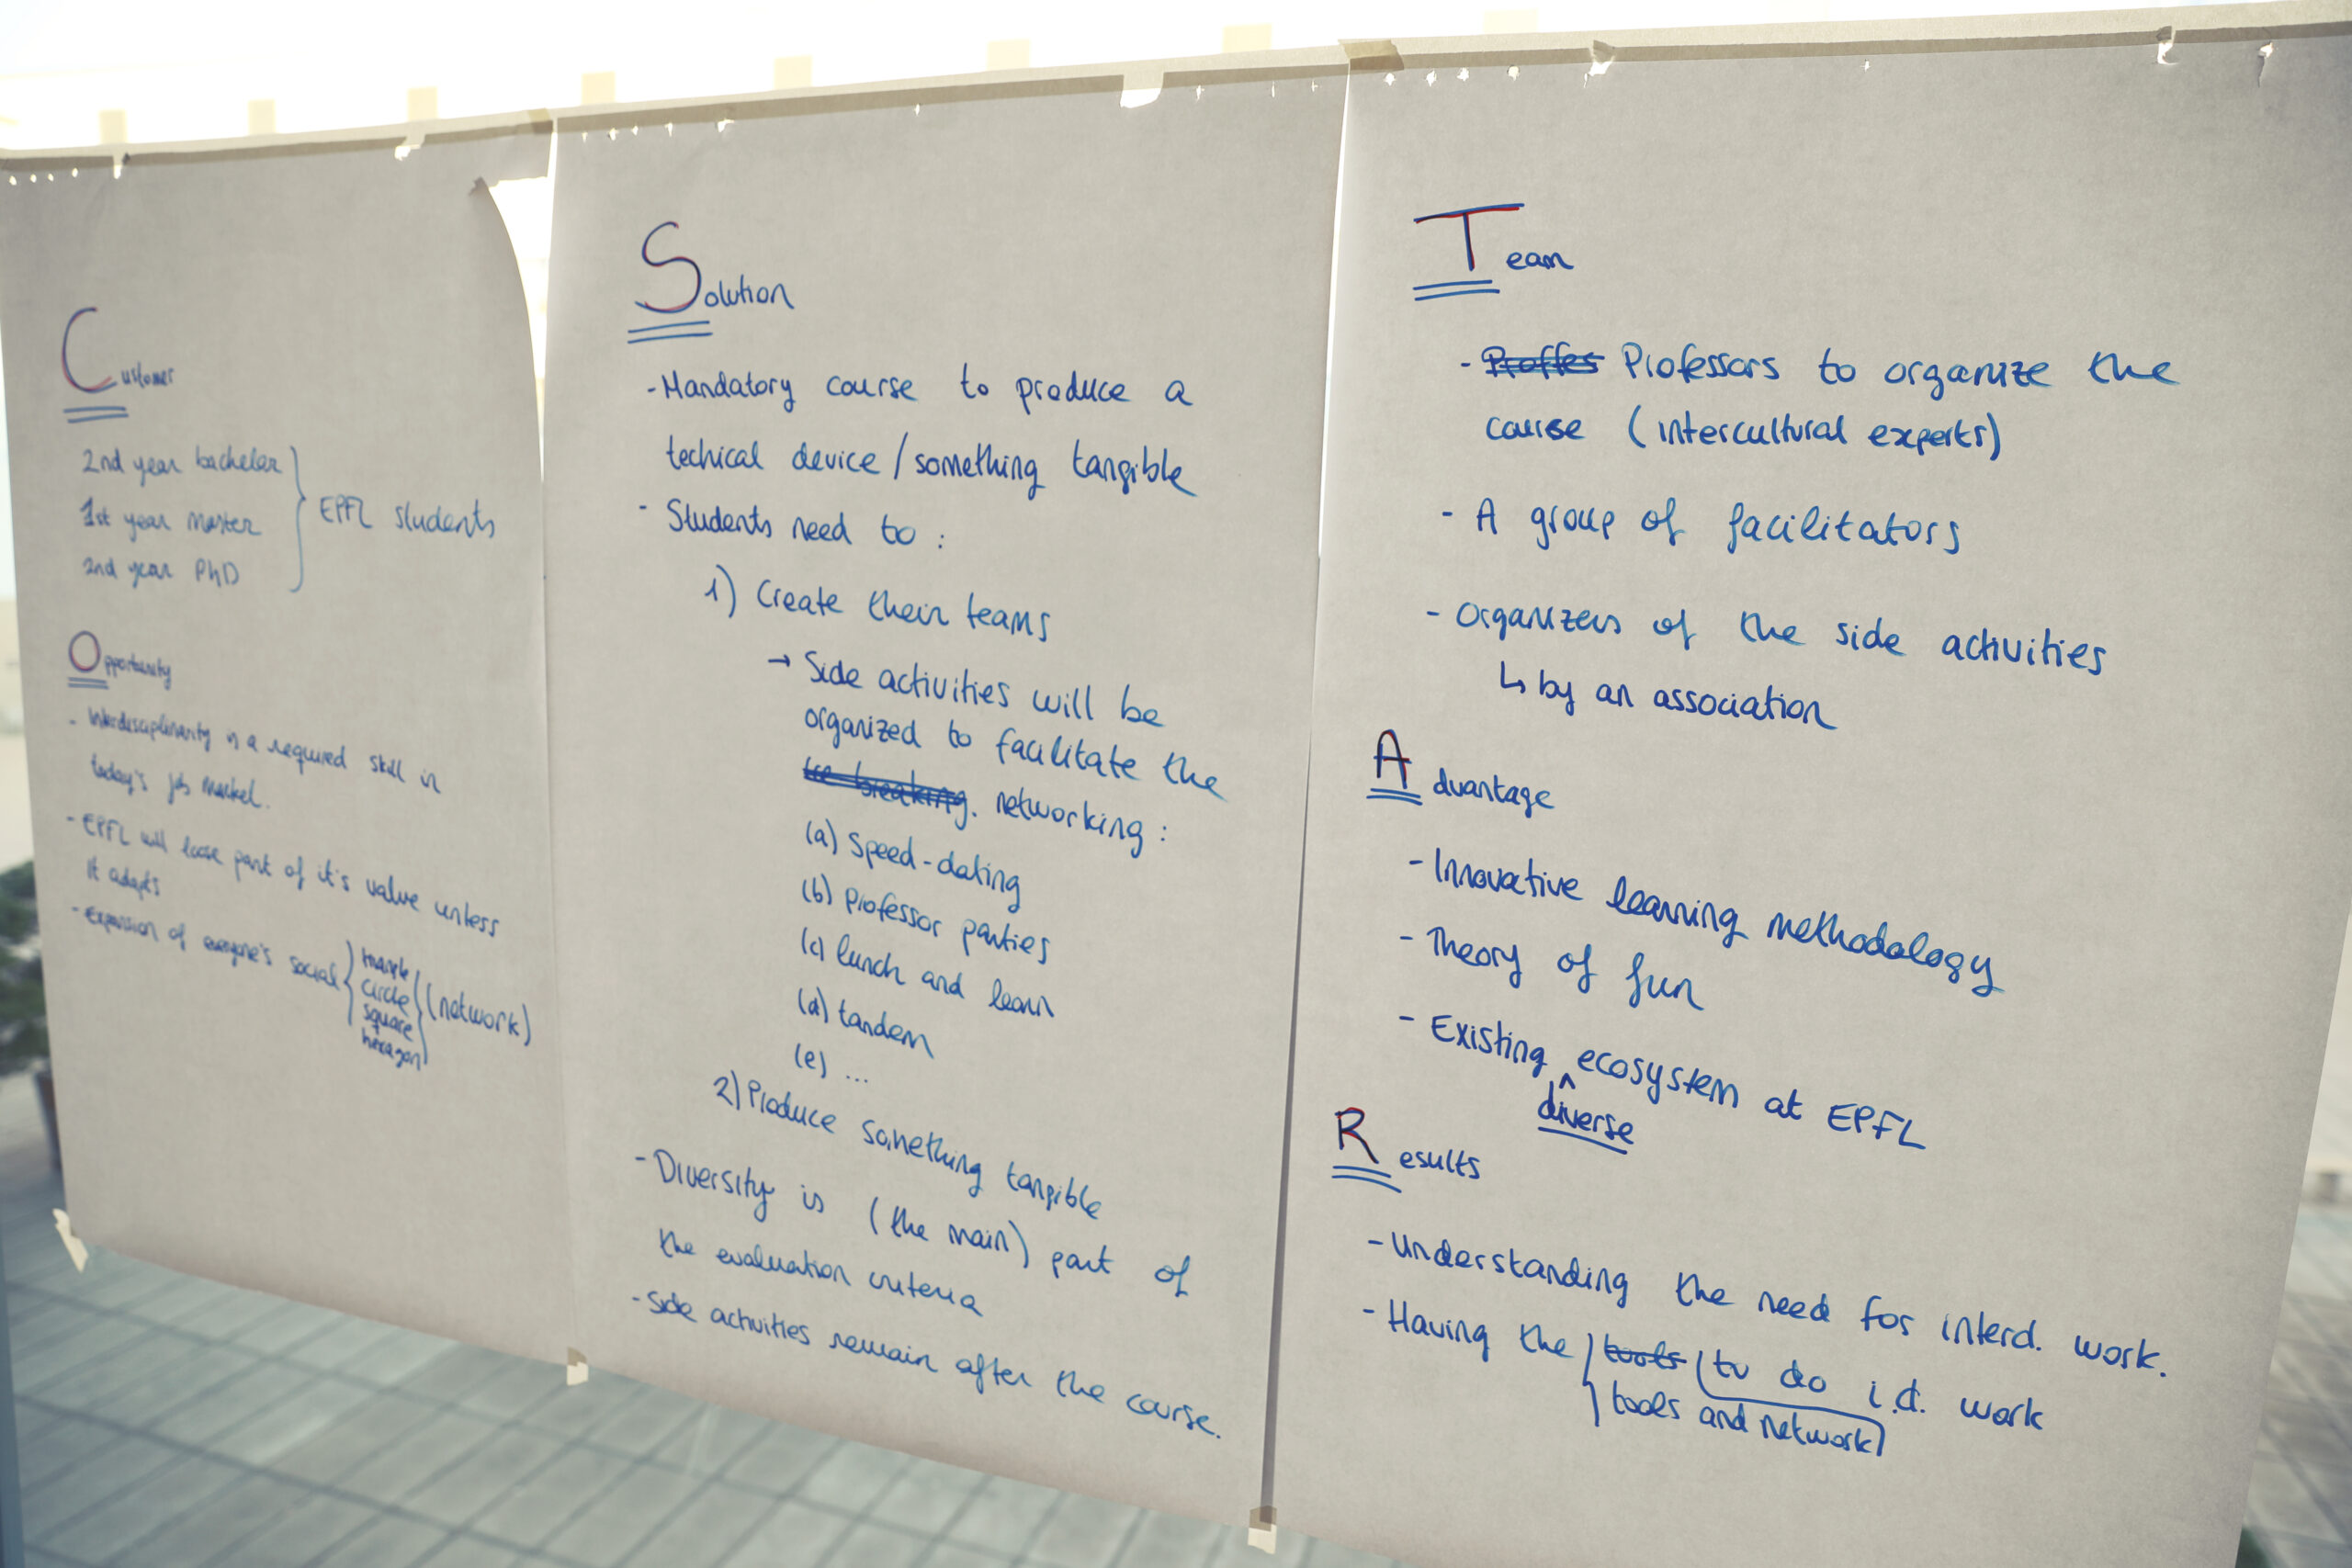 Customer
2nd year bachelor
1st year Master
2nd year PhD
EPFL students
Opportunity
- Interdisciplinarity is a required skill in
today's job market.
- EPFL will loose part of it's value unless
it adapts
- Expansion of everyone's social
triangle
circle
square
hexagon
(network)
Solution
- Mandatory course to produce a
techical device / something tangible
- Students need to :
1) Create their teams
→ Side activities will be
organized to facilitate the
ice breaking. networking :
(a) Speed-dating
(b) Professor parties
(c) lunch and learn
(d) tandem
(e) ...
2) Produce something tangible
- Diversity is (the main) part of
the evaluation criteria
- Side activities remain after the course.
Team
- Proffes Professors to organize the
course (intercultural experts)
- A group of facilitators
- Organizers of the side activities
↳ by an association
Advantage
- Innovative learning methodology
- Theory of fun
- Existing ^ ecosystem at EPFL
diverse
Results
- Understanding the need for interd. work.
- Having the tools to do i.d. work
tools and network